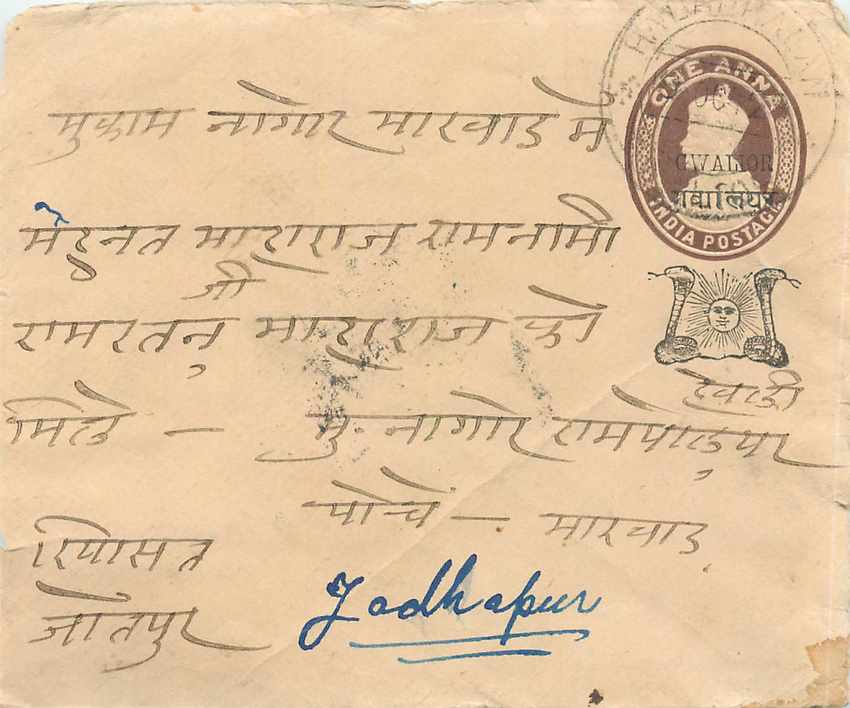 ONE ANNA
GWALIOR
गवालियर
INDIA POSTAGE
मुकाम नागोर मारवाड मे
माहाराज रामनामी
जी
रामरतन माहाराज को
मिले — मु. नागोर रामपोल पर
पोचे — मारवाड
रियासत
जोतपुर
Jodhapur